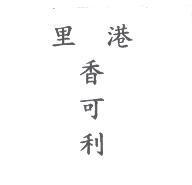 里 港
香
可
利